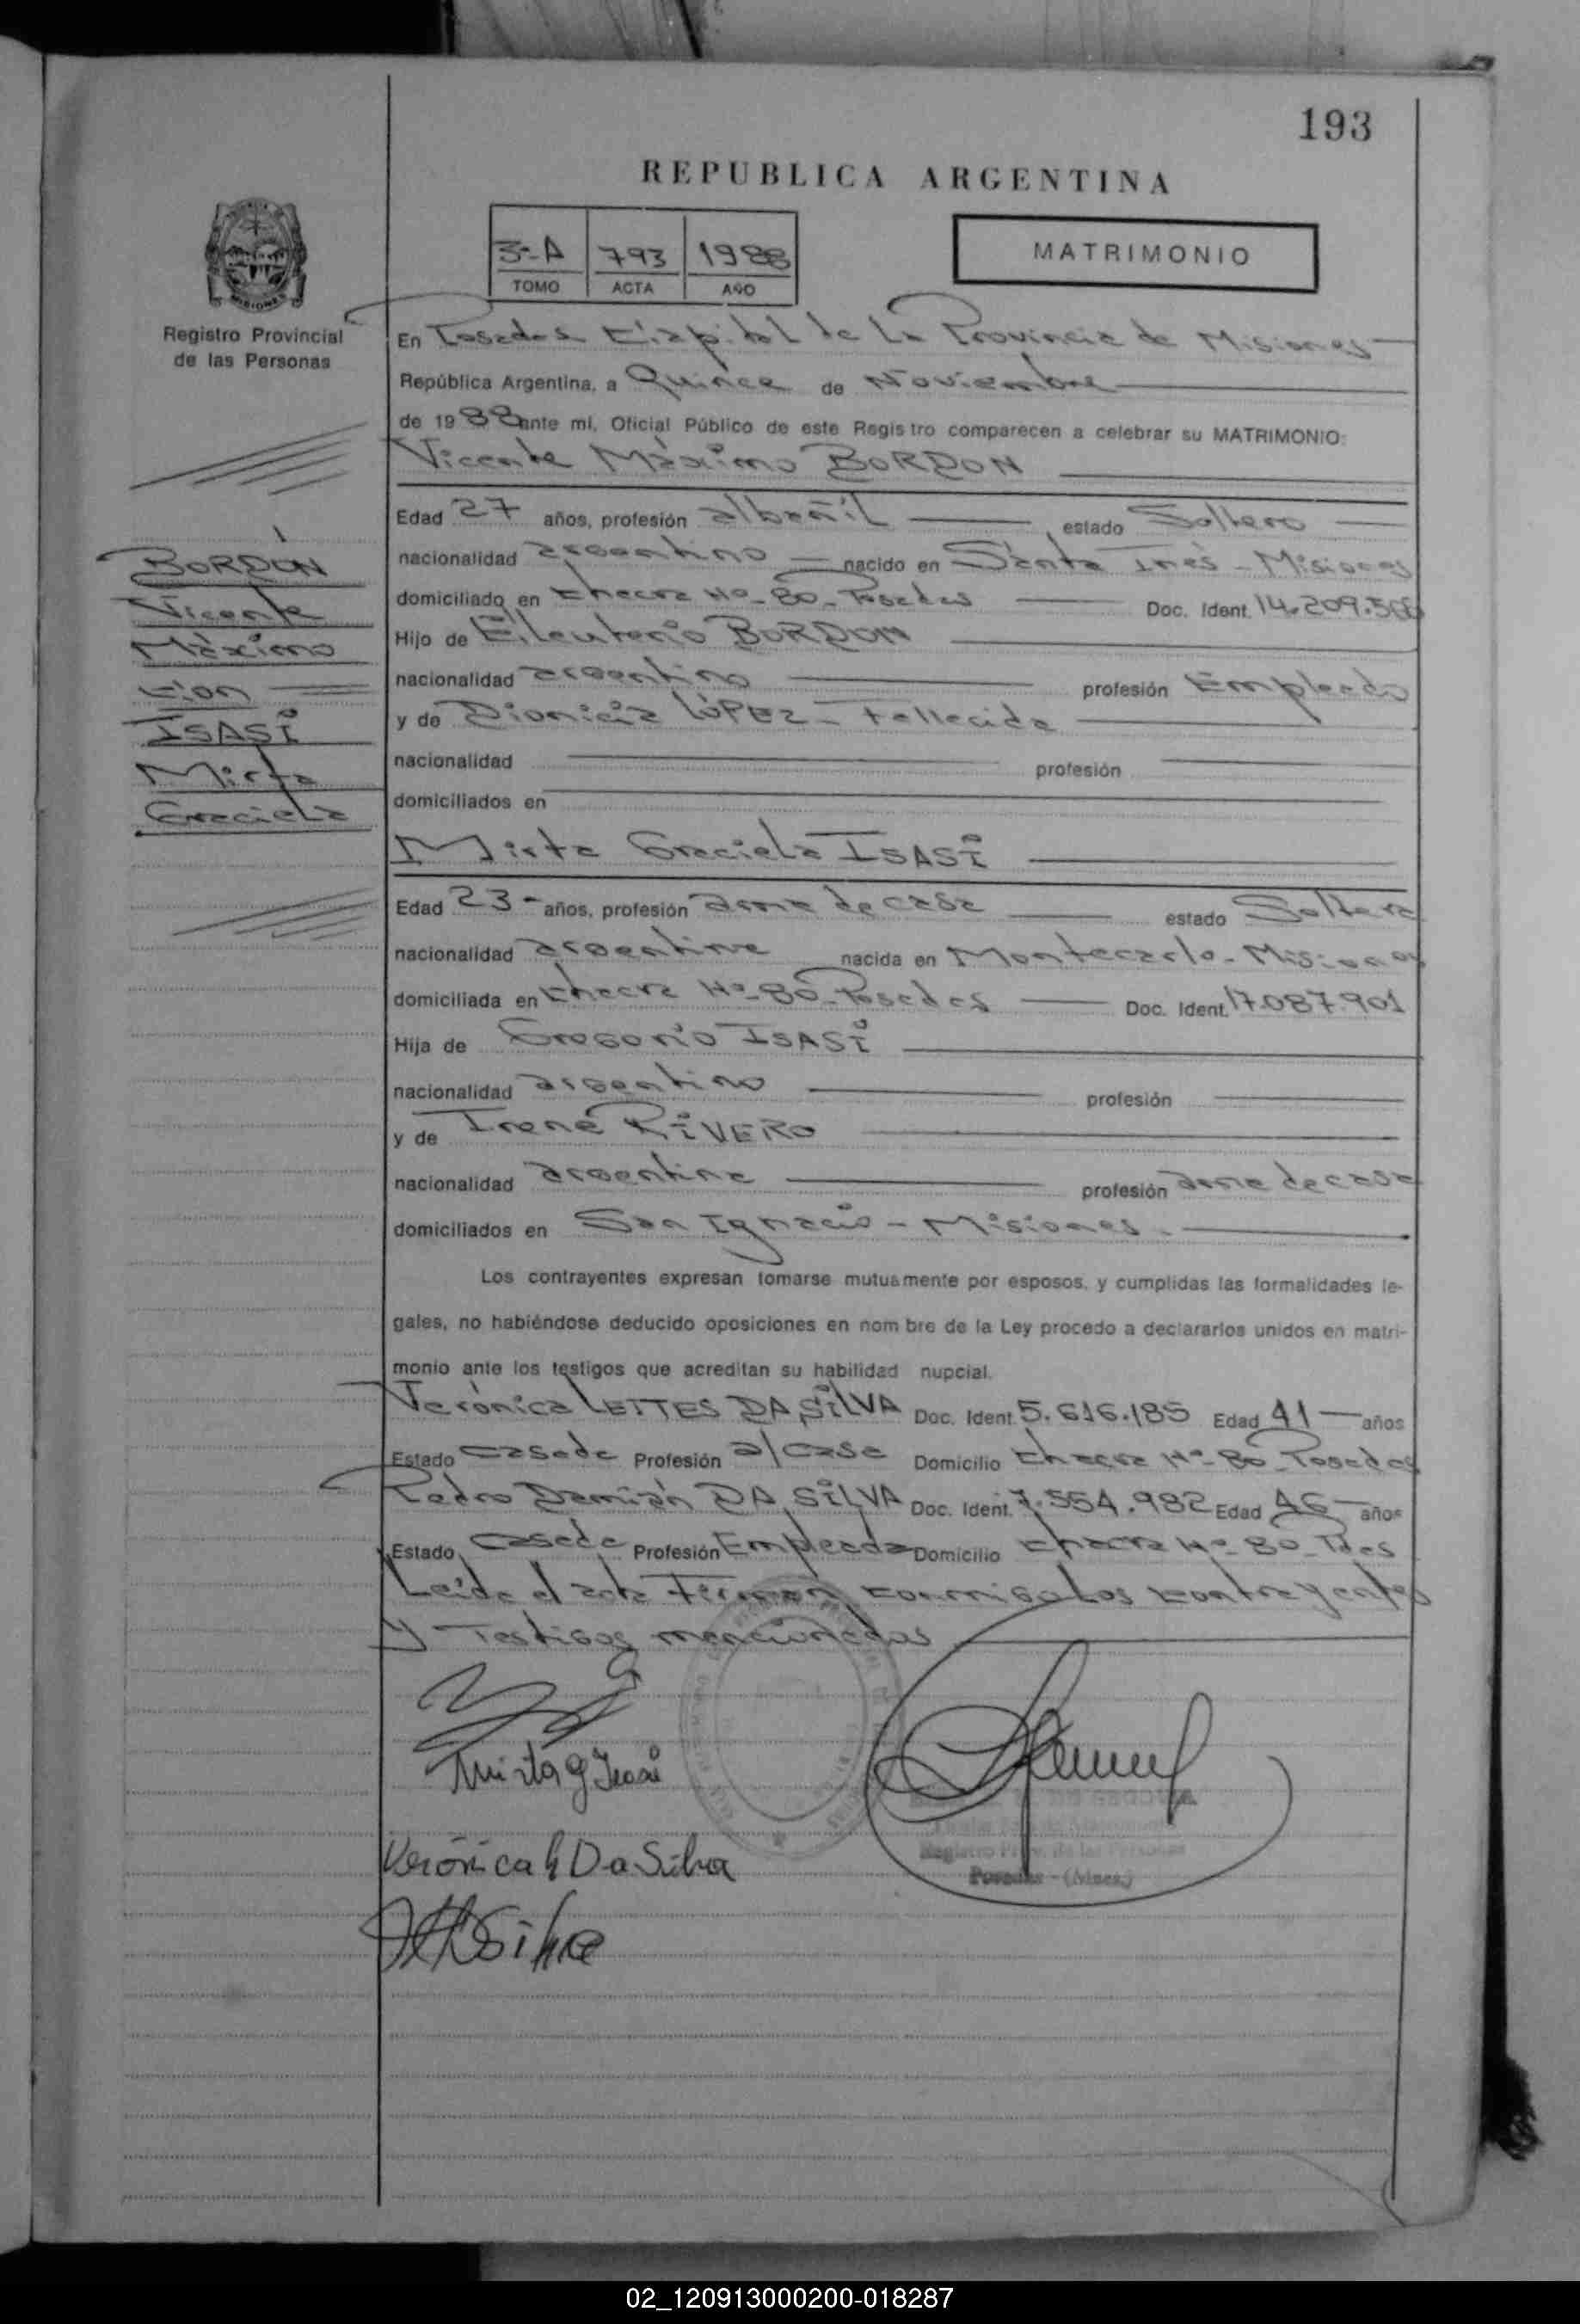 193
REPUBLICA ARGENTINA
3-A 793 1988
TOMO ACTA AÑO
MATRIMONIO
Registro Provincial
de las Personas
En Posadas Capital de La Provincia de Misiones
República Argentina, a Quince de Noviembre
de 1988 ante mí, Oficial Público de este Registro comparecen a celebrar su MATRIMONIO:
Vicente Máximo BORDON
Edad 27 años, profesión albañil estado Soltero
nacionalidad argentino nacido en Santa Inés - Misiones
domiciliado en Chacra Nº 80 - Posadas Doc. Ident. 14.209.
Hijo de Eleuterio BORDON
nacionalidad argentino profesión Empleado
y de Dionicia LÓPEZ - Fallecida
nacionalidad profesión
domiciliados en
BORDÓN
Vicente
Máximo
con
ISASI
Mirta
Graciela
Mirta Graciela ISASI
Edad 23 - años, profesión ama de casa estado Soltera
nacionalidad argentina nacida en Montecarlo - Misiones
domiciliada en Chacra Nº 80 - Posadas Doc. Ident. 17.087.901
Hija de Gregorio ISASI
nacionalidad argentino profesión
y de Irene RIVERO
nacionalidad argentina profesión ama de casa
domiciliados en San Ignacio - Misiones.
Los contrayentes expresan tomarse mutuamente por esposos, y cumplidas las formalidades le-
gales, no habiéndose deducido oposiciones en nom bre de la Ley procedo a declararlos unidos en matri-
monio ante los testigos que acreditan su habilidad nupcial.
Verónica LETTES DA SILVA Doc. Ident. 5.616.185 Edad 41 años
Estado Casada Profesión a/casa Domicilio Chacra Nº 80 - Posadas
Pedro Damián DA SILVA Doc. Ident. 7.554.982 Edad 46 años
Estado Casado Profesión Empleado Domicilio Chacra Nº 80 - Pdas
Leída el acta Firman conmigo Los contrayentes
y Testigos mencionados
Mirta G Isasi
DE SEGOVIA
Registro Prov. de las Personas
Posadas - (Mnes.)
Verónica L Da Silva
02_120913000200-018287